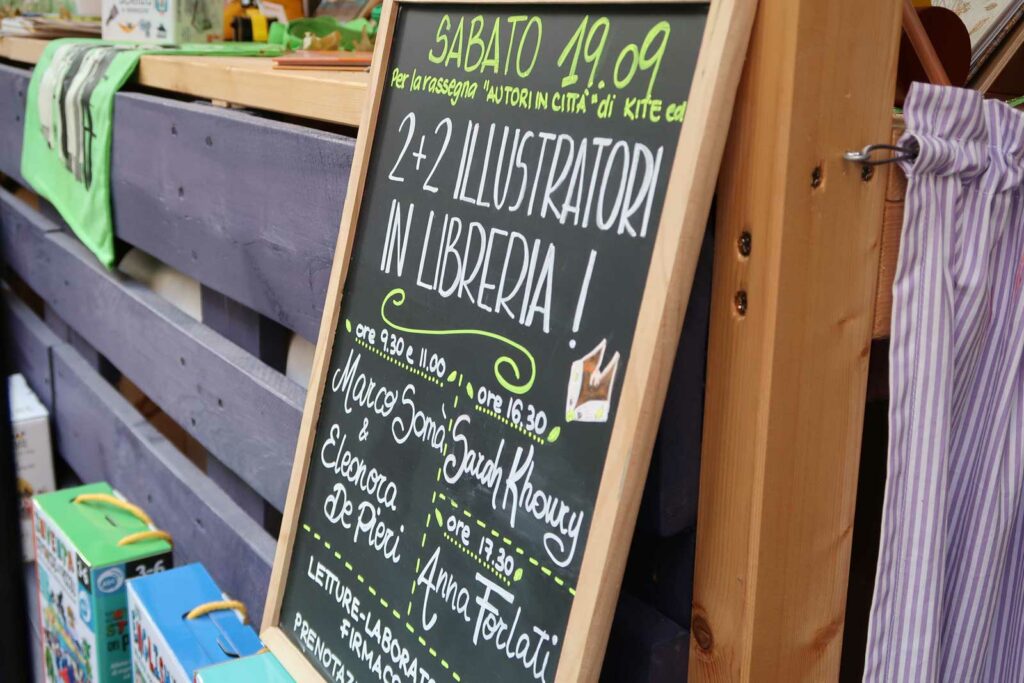 SABATO 19.09
Per la rassegna "AUTORI IN CITTÀ" di KITE ed
2+2 ILLUSTRATORI
IN LIBRERIA!
ore 9.30 e 11.00
Marco Somà
&
Eleonora
De Pieri
ore 16.30
Sarah Khoury
ore 17.30
Anna Forlati
LETTURE-LABORAT
FIRMACO
PRENOTAZ
3-6